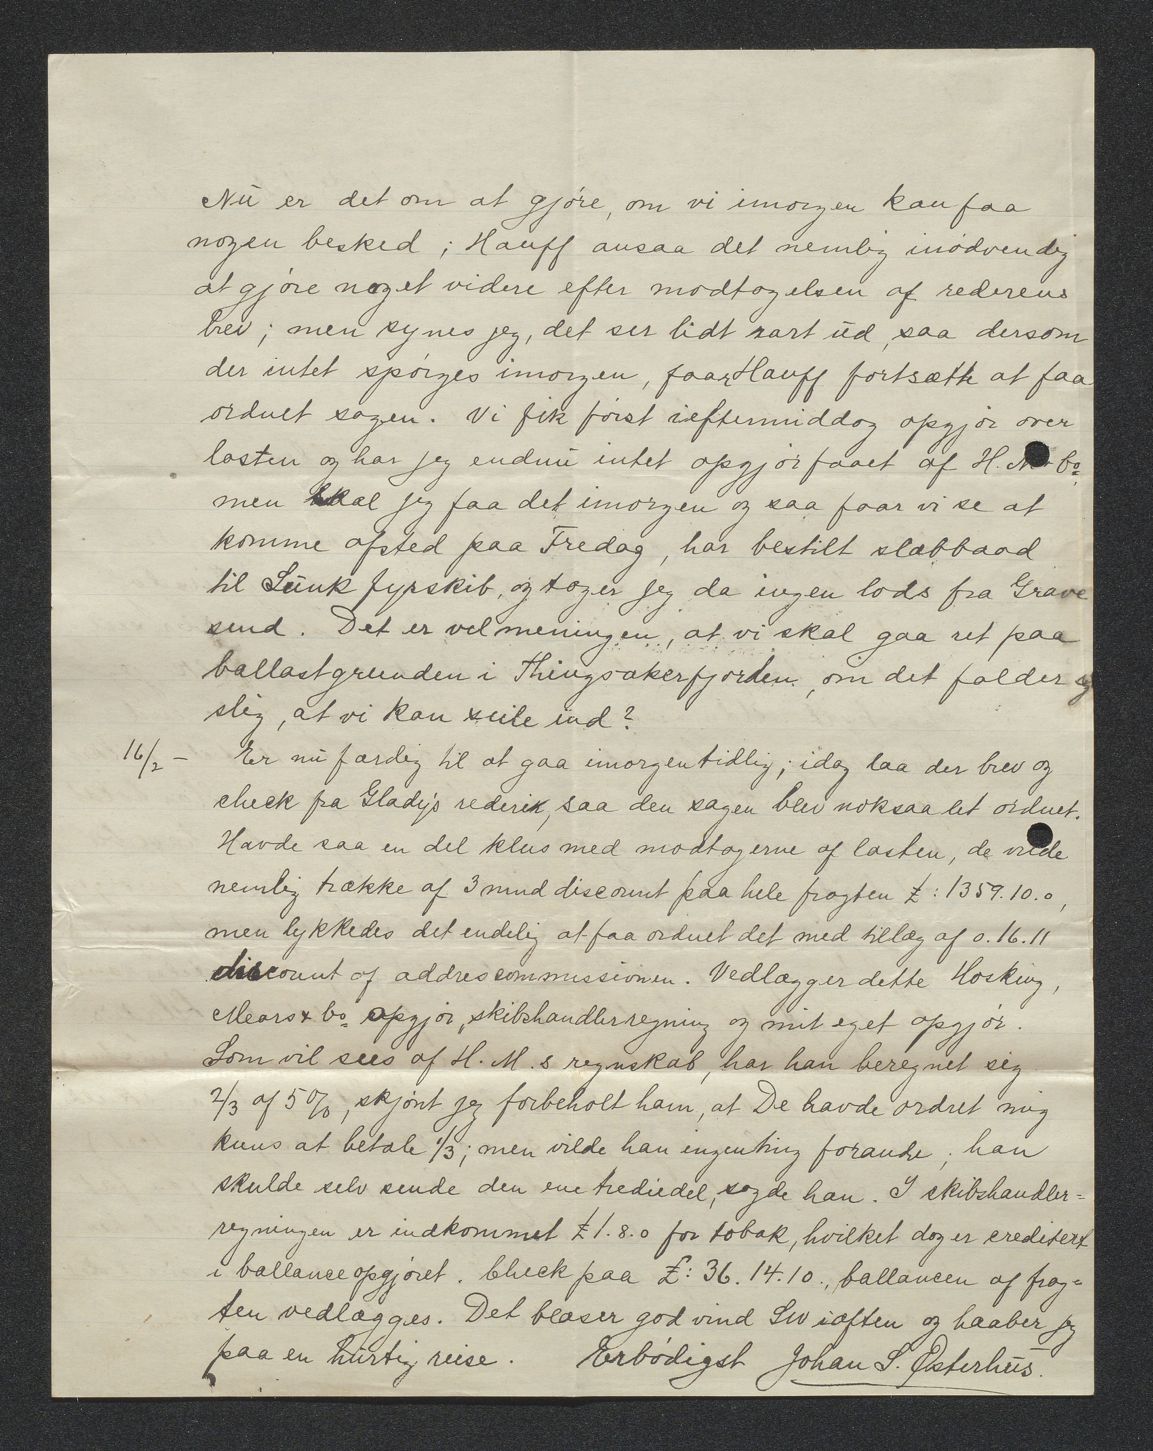 Nu er det om at gjøre, om vi imorgen kan faa
nogen besked; Hauff ansaa det nemlig inødvendig
at gjøre noget videre efter modtagelsen af rederens
brev; men synes jeg, det ser lidt rart ud, saa dersom
der intet spørges imorgen, faar Hauff fortsætte at faa
ordnet sagen. Vi fik først ieftermiddag opgjør over
lasten og har jeg endnu intet opgjør faaet af H. M & Co
men skal jeg faa det imorgen og saa faar vi se at
komme afsted paa Fredag, har bestilt slæbbaad
til Sunk fyrskib, og tager jeg da ingen lods fra Grave
send. Det er vel meningen, at vi skal gaa ret paa
ballastgrunden i Thingsakerfjorden, om det falder sig
slig, at vi kan seile ind?
16/2 — Er nu færdig til at gaa imorgentidlig; idag laa der brev og
check fra Gladys rederi, saa den sagen blev noksaa let ordnet.
Havde saa en del klus med modtagerne af lasten, de vilde
nemlig trække af 3 mnd discount paa hele fragten £: 1359.10.0,
men lykkedes det endelig at faa ordnet det med tillæg af 0.16.11
discount af addrescommissionen. Vedlægger dette Hosking,
Mears & Co opgjør, skibshandlerregning og mit eget opgjør.
Som vil sees af H. M.s regnskab, har han beregnet sig
2/3 af 5%, skjønt jeg forbeholt ham, at De havde ordret mig
kuns at betale 1/3; men vilde han ingenting forandre; han
skulde selv sende den ene trediedel, sagde han. I skibshandler=
regningen er indkommet £1.8.0 for tobak, hvilket dog er creditert
i ballanceopgjøret. Check paa £: 36.14.10., ballancen af frag=
ten vedlægges. Det blæser god vind SW iaften og haaber jeg
paa en hurtig reise. Erbødigst Johan S. Østerhus.